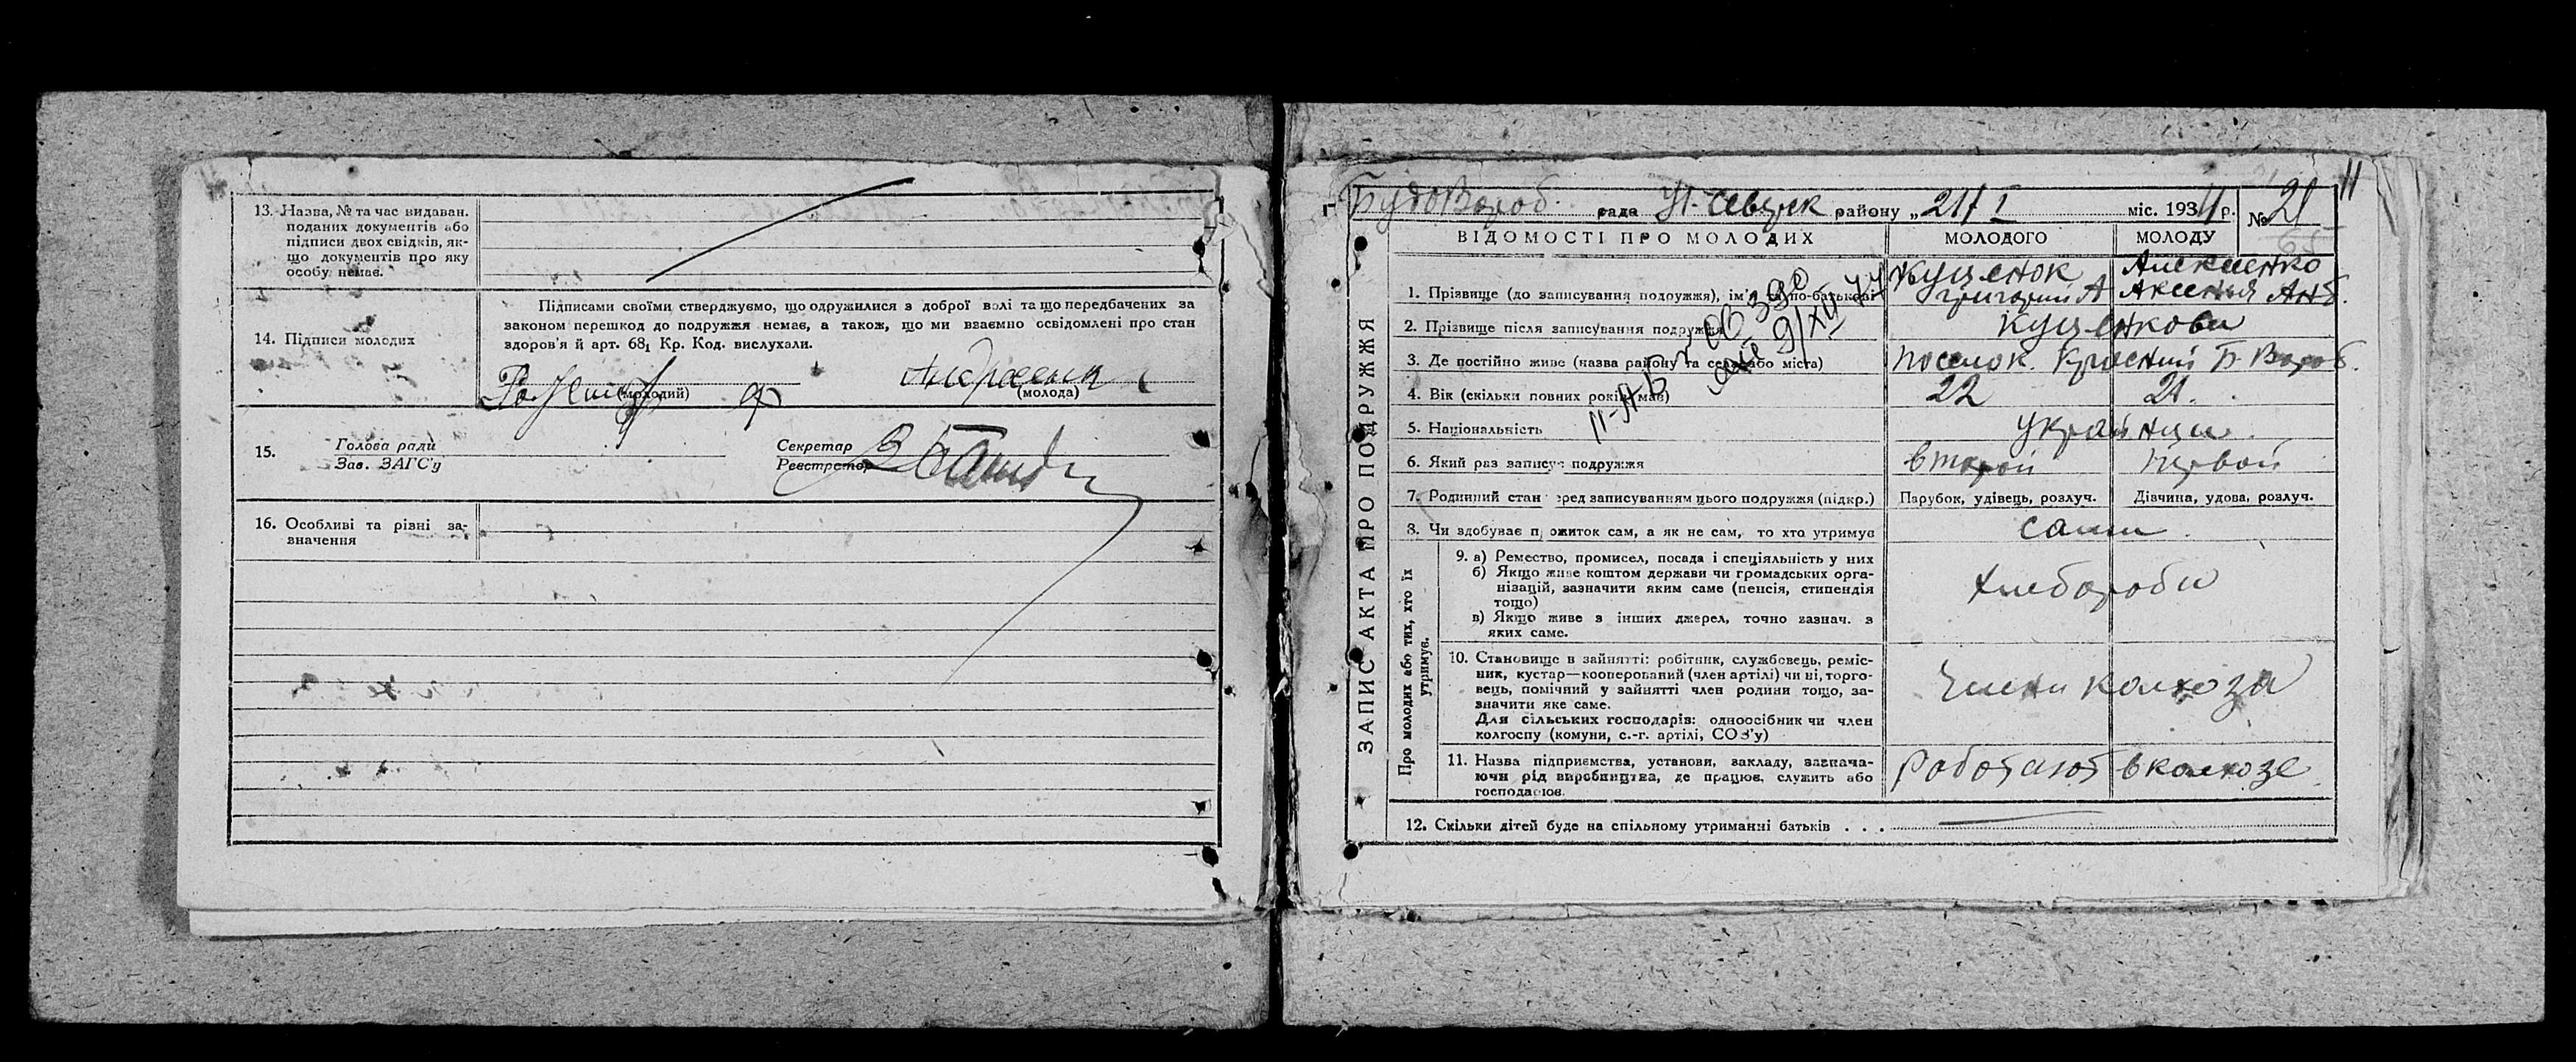 13. Назва, № та час видаван.
поданих документів або
підписи двох свідків, як-
що документів про яку
особу немає.
14. Підписи молодих
Підписами своїми стверджуємо, що одружилися з доброї волі та що передбачених за
законом перешкод до подружжя немає, а також, що ми взаємно освідомлені про стан
здоров'я й арт. 68₁ Кр. Код. вислухали.
(молодий)
(молода)
15. Голова ради
Зав. ЗАГС'у
Секретар
Реєстратор
16. Особливі та різні за-
значення
11
БудоВороб. рада район у „21" I міс. 1934 р. № 21
ЗАПИС АКТА ПРО ПОДРУЖЖЯ
ВІДОМОСТІ ПРО МОЛОДИХ МОЛОДОГО МОЛОДУ
1. Прізвище (до записування подружжя), ім'я та по-батькові Куценок Григорий А Алексеенко Аксенья Ант.
2. Прізвище після записування подружжя Куценкови
3. Де постійно живе (назва району та села або міста) поселок. Красний Б Вороб.
4. Вік (скільки повних років має) 22 21.
5. Національність Українци.
6. Який раз записує подружжя второй первой
7. Родинний стан перед записуванням цього подружжя (підкр.) Парубок, удівець, розлуч. Дівчина, удова, розлуч.
8. Чи здобуває прожиток сам, а як не сам, то хто утримує сами.
Про молодих або тих, хто їх утримує.
9. а) Ремество, промисел, посада і спеціяльність у них хлебороби
б) Якщо живе коштом держави чи громадських орга-
нізацій, зазначити яким саме (пенсія, стипендія
тощо)
в) Якщо живе з інших джерел, точно зазнач. з
яких саме.
10. Становище в зайнятті: робітник, службовець, реміс-
ник, кустар—кооперований (член артілі) чи ні, торго-
вець, помічний у зайнятті член родини тощо, за-
значити яке саме.
Для сільських господарів: одноосібник чи член
колгоспу (комуни, с.-г. артілі, СОЗ'у)
члени колхоза
11. Назва підприємства, установи, закладу, зазнача-
ючи рід виробництва, де працює, служить або
господарює.
Роботают в колхозе
12. Скільки дітей буде на спільному утриманні батьків . . .